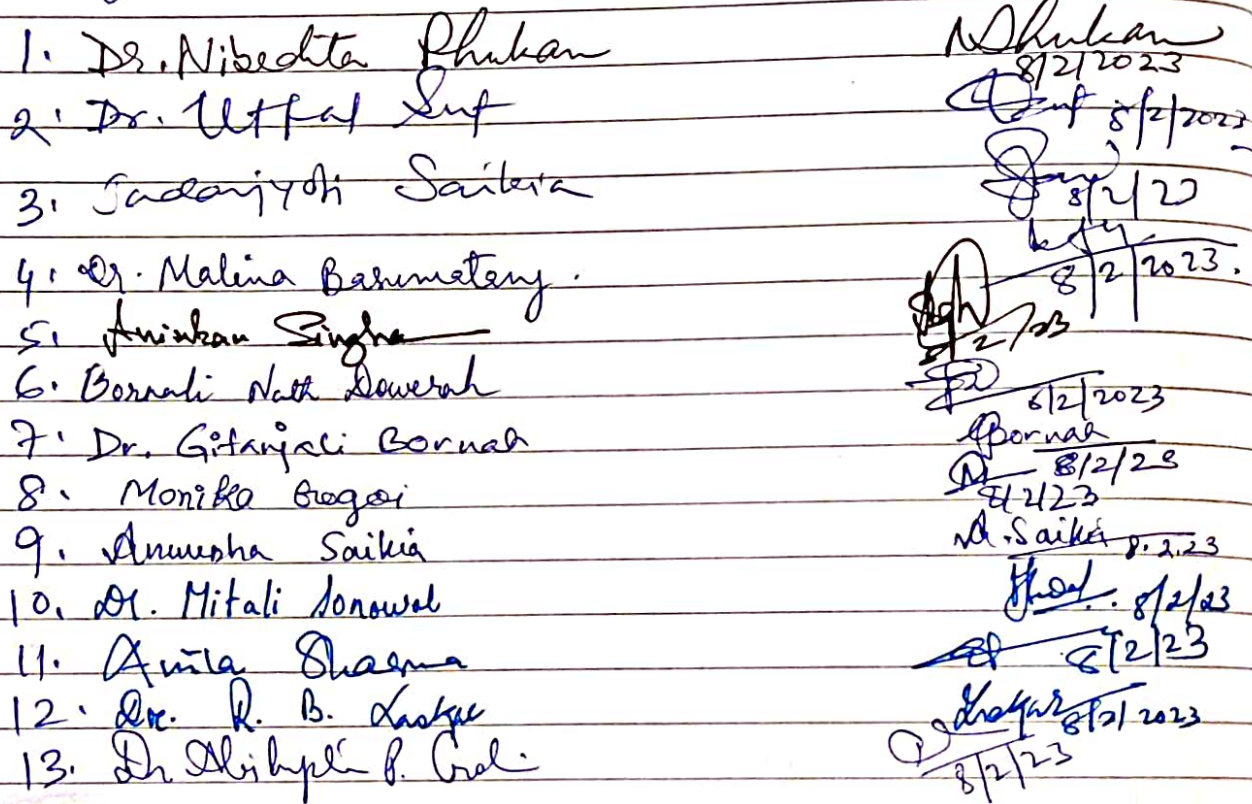 1. Dr. Nibedita Phukan NPhukan 8/2/2023
2. Dr. Utpal Sut 8/2/2023
3. Jadavjyoti Saikia 8/2/23
4. Dr. Malina Basumatary. 8/2/2023.
5. Anirban Singha 8/2/23
6. Bornali Nath Dowerah 8/2/2023
7. Dr. Gitanjali Boruah GBoruah 8/2/23
8. Monika Gogoi 8/2/23
9. Anwesha Saikia A. Saikia 8.2.23
10. Dr. Mitali Sonowal 8/2/23
11. Anita Sharma 8/2/23
12. Dr. R. B. Laskar Laskar 8/2/2023
13. Dr P. 8/2/23